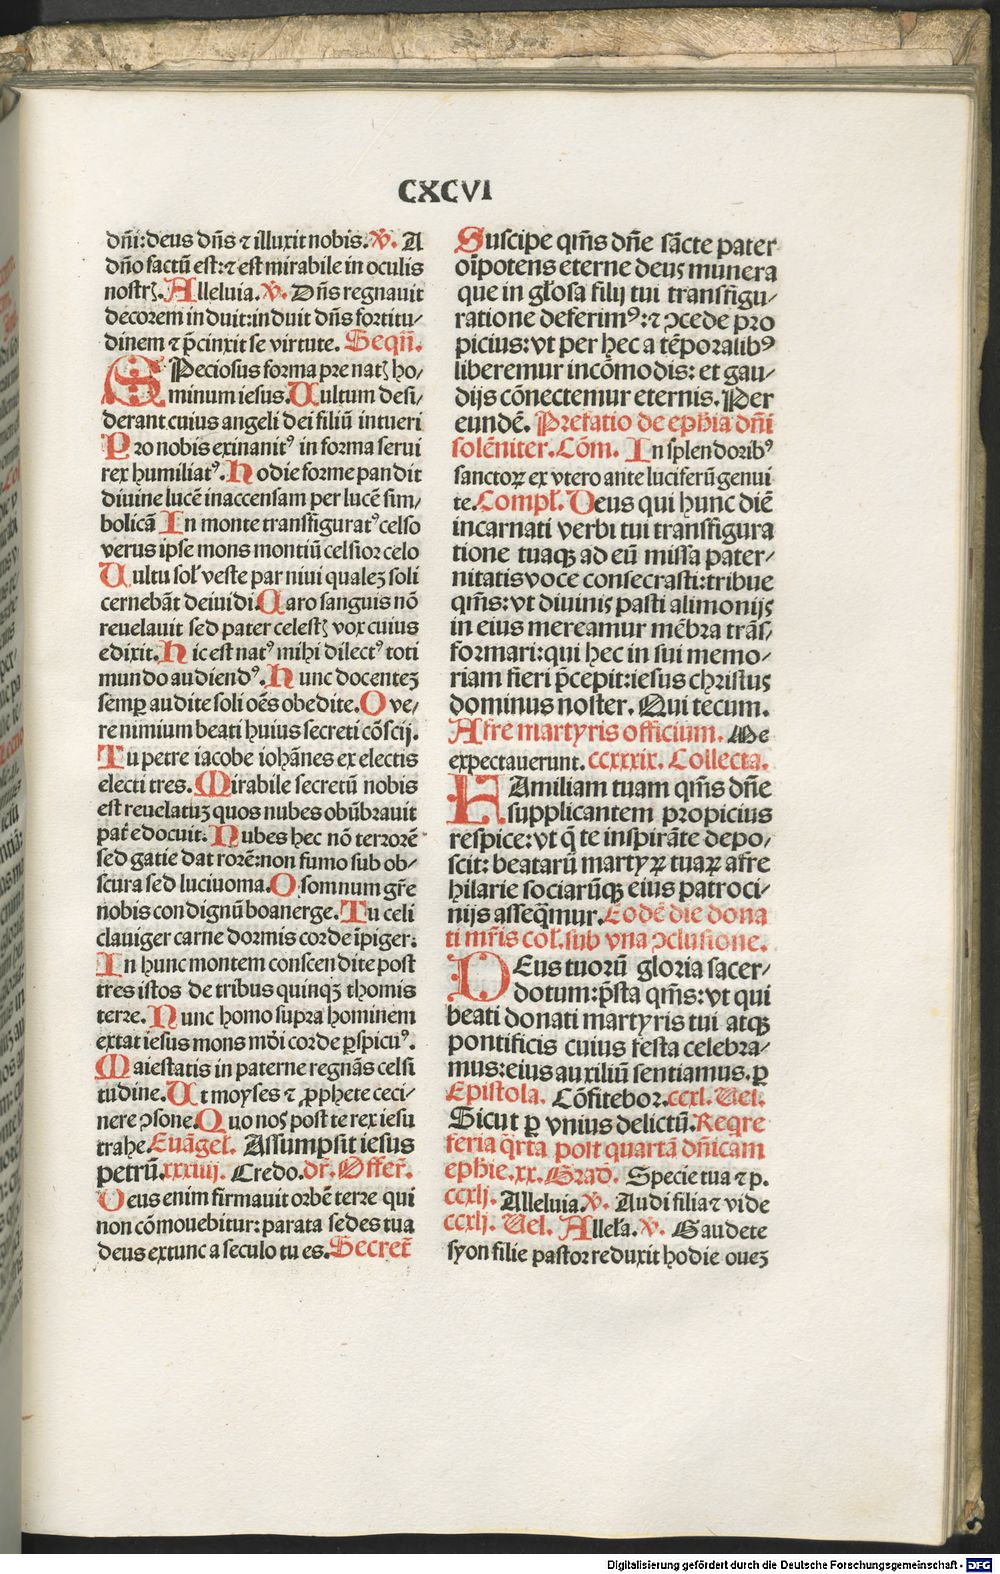 CXCVI
dñi: deus dñs ⁊ illuxit nobis. ꝟ. A
dño factū est: ⁊ est mirabile in oculis
nostrꝫ. Alleluia. ꝟ. Dñs regnauit
decorem induit: induit dñs fortitu⸗
dinem ⁊ p̄cinxit se virtute. Seqū.
SPeciosus forma pre natꝫ ho⸗
minum iesus. Uultum desi⸗
derant cuius angeli dei filiū intueri
Pro nobis exinanitꝰ in forma serui
rex humiliatꝰ. Hodie forme pandit
diuine lucē inaccensam per lucē sim⸗
bolicā In monte transfiguratꝰ celso
verus ipse mons montiū celsior celo
Uultu sol̛ veste par niui qualeꝫ soli
cernebāt deiuidi. Caro sanguis nō
reuelauit sed pater celestꝫ vox cuius
edixit. Hic est natꝰ mihi dilectꝰ toti
mundo audiendꝰ. Hunc docenteꝫ
semꝑ audite soli oēs obedite. O ve⸗
re nimium beati huius secreti cōscij.
Tu petre iacobe iohānes ex electis
electi tres. Mirabile secretū nobis
est reuelatuꝫ quos nubes obūbrauit
pat̄ edocuit. Nubes hec nō terrorē
sed gatie dat rorē: non fumo sub ob⸗
scura sed luciuoma. O somnum gr̄e
nobis condignū boanerge. Tu celi
clauiger carne dormis corde īpiger:
In hunc montem conscendite post
tres istos de tribus quinqꝫ thomis
terre. Nunc homo supra hominem
extat iesus mons mūdi corde ꝑspicuꝰ.
Maiestatis in paterne regnās celsi
tudine. Ut moyses ⁊ ꝓphete ceci⸗
nere ꝯsone. Quo nos post te rex iesu
trahe. Euāgel̛. Assumpsit iesus
petrū. xxxiiij. Credo. dr̄. Offer̄.
Deus enim firmauit orbē terre qui
non cōmouebitur: parata sedes tua
deus extunc a seculo tu es. Secret̄
Suscipe qm̄s dn̄e sācte pater
oīpotens eterne deus munera
que in gl̛osa filij tui transfigu⸗
ratione deferimꝰ: ⁊ ꝯcede pro
picius: vt per hec a tēporalibꝰ
liberemur incōmodis: et gau⸗
dijs cōnectemur eternis. Per
eundē. Prefatio de ephīa dn̄i
solēniter. Cōm. In splendoribꝰ
sanctoꝝ ex vtero ante luciferū genui
te. Compl̛. Deus qui hunc diē
incarnati verbi tui transfigura
tione tuaqꝫ ad eū missa pater⸗
nitatis voce consecrasti: tribue
qm̄s: vt diuinis pasti alimonijs
in eius mereamur mēbra trās⸗
formari: qui hec in sui memo⸗
riam fieri p̄cepit: iesus christus
dominus noster. Qui tecum.
Afre martyris officium. Me
expectauerunt. ccxxxix. Collecta.
FAmiliam tuam qm̄s dn̄e
supplicantem propicius
respice: vt q̄ te inspirāte depo⸗
scit: beatarū martyꝝ tuaꝝ afre
hilarie sociarūqꝫ eius patroci⸗
nijs asseq̄mur. Eodē die dona
ti mr̄is col̛. sub vna ꝯclusione.
DEus tuorū gloria sacer⸗
dotum: p̄sta qm̄s: vt qui
beati donati martyris tui atqꝫ
pontificis cuius festa celebra⸗
mus: eius auxiliū sentiamus. ꝑ
Epistola. Cōfitebor. ccxl. Uel.
Sicut ꝑ vnius delictū. Reqre
feria q̄rta post quartā dn̄icam
ephie. xx. Grad̄. Specie tua ⁊ p.
ccxlj. Alleluia. ꝟ. Audi filia ⁊ vide
ccxlj. Uel. Allel̛a. ꝟ. Gaudete
syon filie pastor reduxit hodie oueꝫ
Digitalisierung gefördert durch die Deutsche Forschungsgemeinschaft - DFG